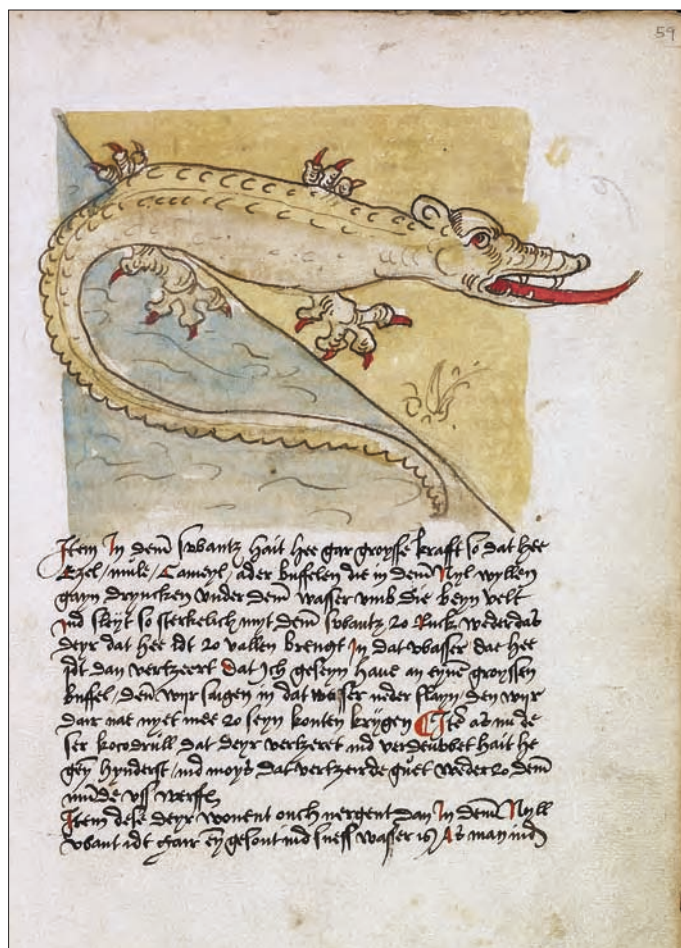 59
Item In dem̄ swantz hait hee gar groysse krafft so dat hee
Ezel / mule / Cameyl / ader buffelen die in dem̄ Nyl wyllen
gayn dryncken vnder dem̄ wasser vmb die beyn velt
ind sleyt so sterkelich myt dem̄ swantz zo Ruck weder dat
deyr dat hee idt zo vallen brengt In dat wasser dae hee
idt dan vertzeert Dat ich geseyn haue an eynē groyssen
buffel / den̄ wijr saigen in dat wasser neder slayn / den wyr
dair nae nyet mee zo seyn konten krijgen Itē as nu de
ser kocodrill dat deyr vertzeret ind verdeuwet hait he
geyn hynderst / ind moys dat vertzeirde guet weder zo dem̄
munde vss werffē
Item dese deyr wonent ouch nergent dan In dem̄ Nyll
want idt gair eyn gesont ind suess wasser is As man ind